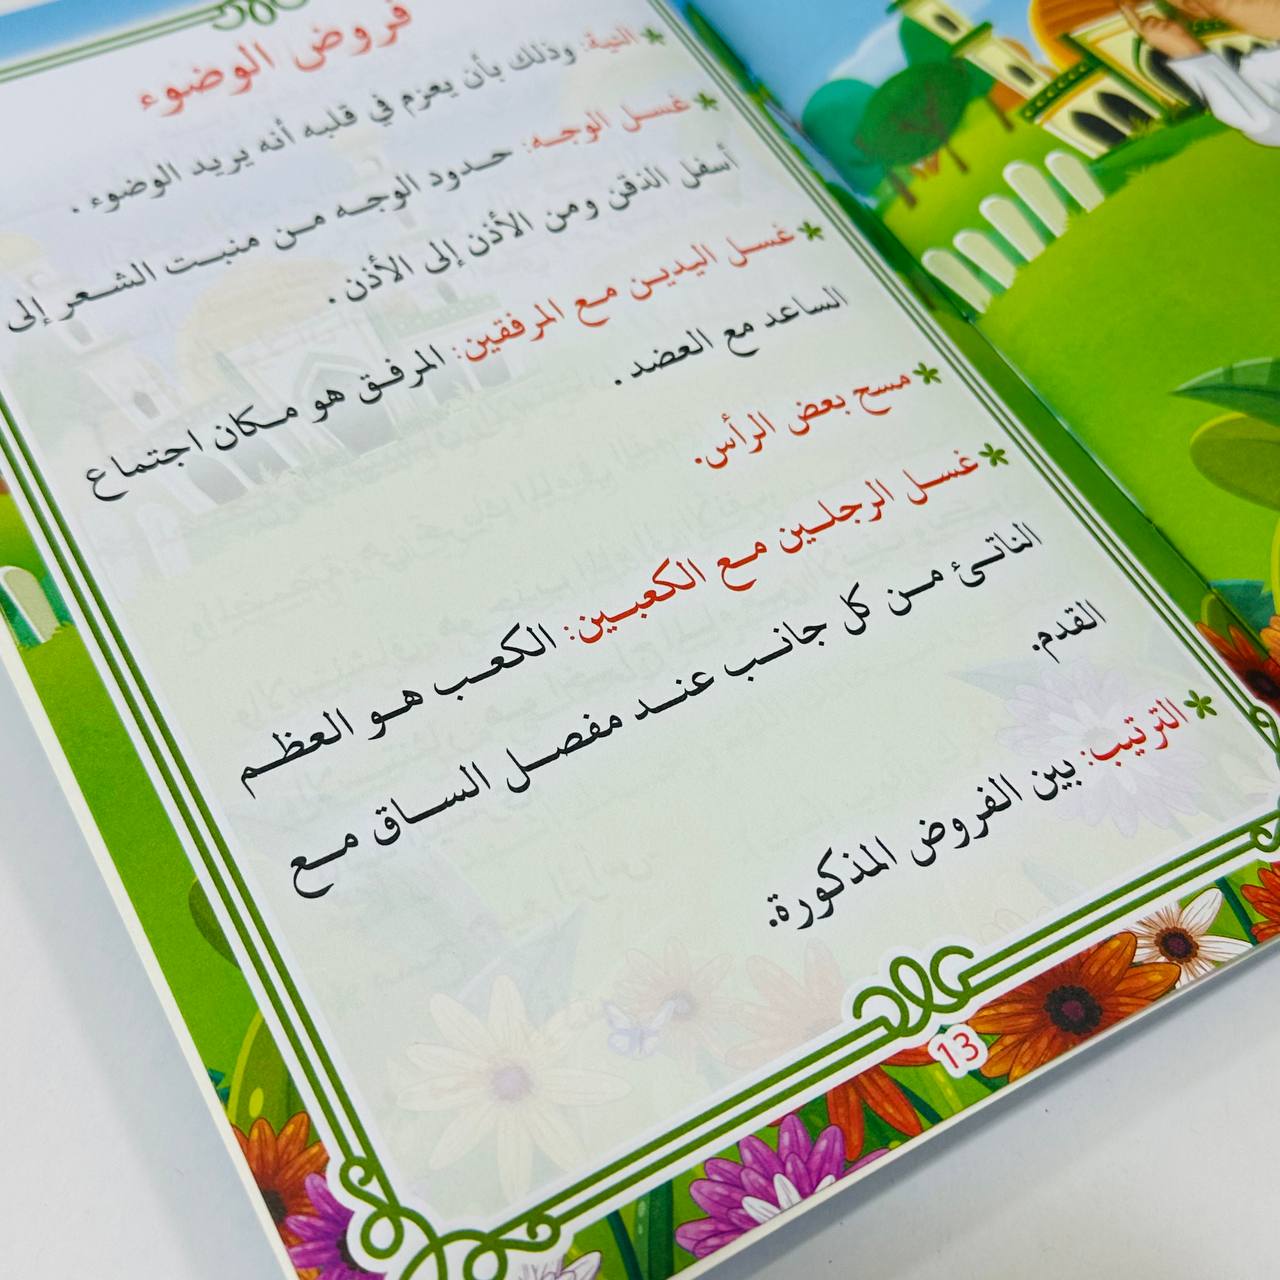 فروض الوضوء
النية: وذلك بأن يعزم في قلبه أنه يريد الوضوء .
غسل الوجه: حدود الوجه من منبت الشعر إلى
أسفل الذقن ومن الأذن إلى الأذن .
غسل اليدين مع المرفقين: المرفق هو مكان اجتماع
الساعد مع العضد .
مسح بعض الرأس.
غسل الرجلين مع الكعبين: الكعب هو العظم
الناتئ من كل جانب عند مفصل الساق مع
القدم.
الترتيب: بين الفروض المذكورة.
13